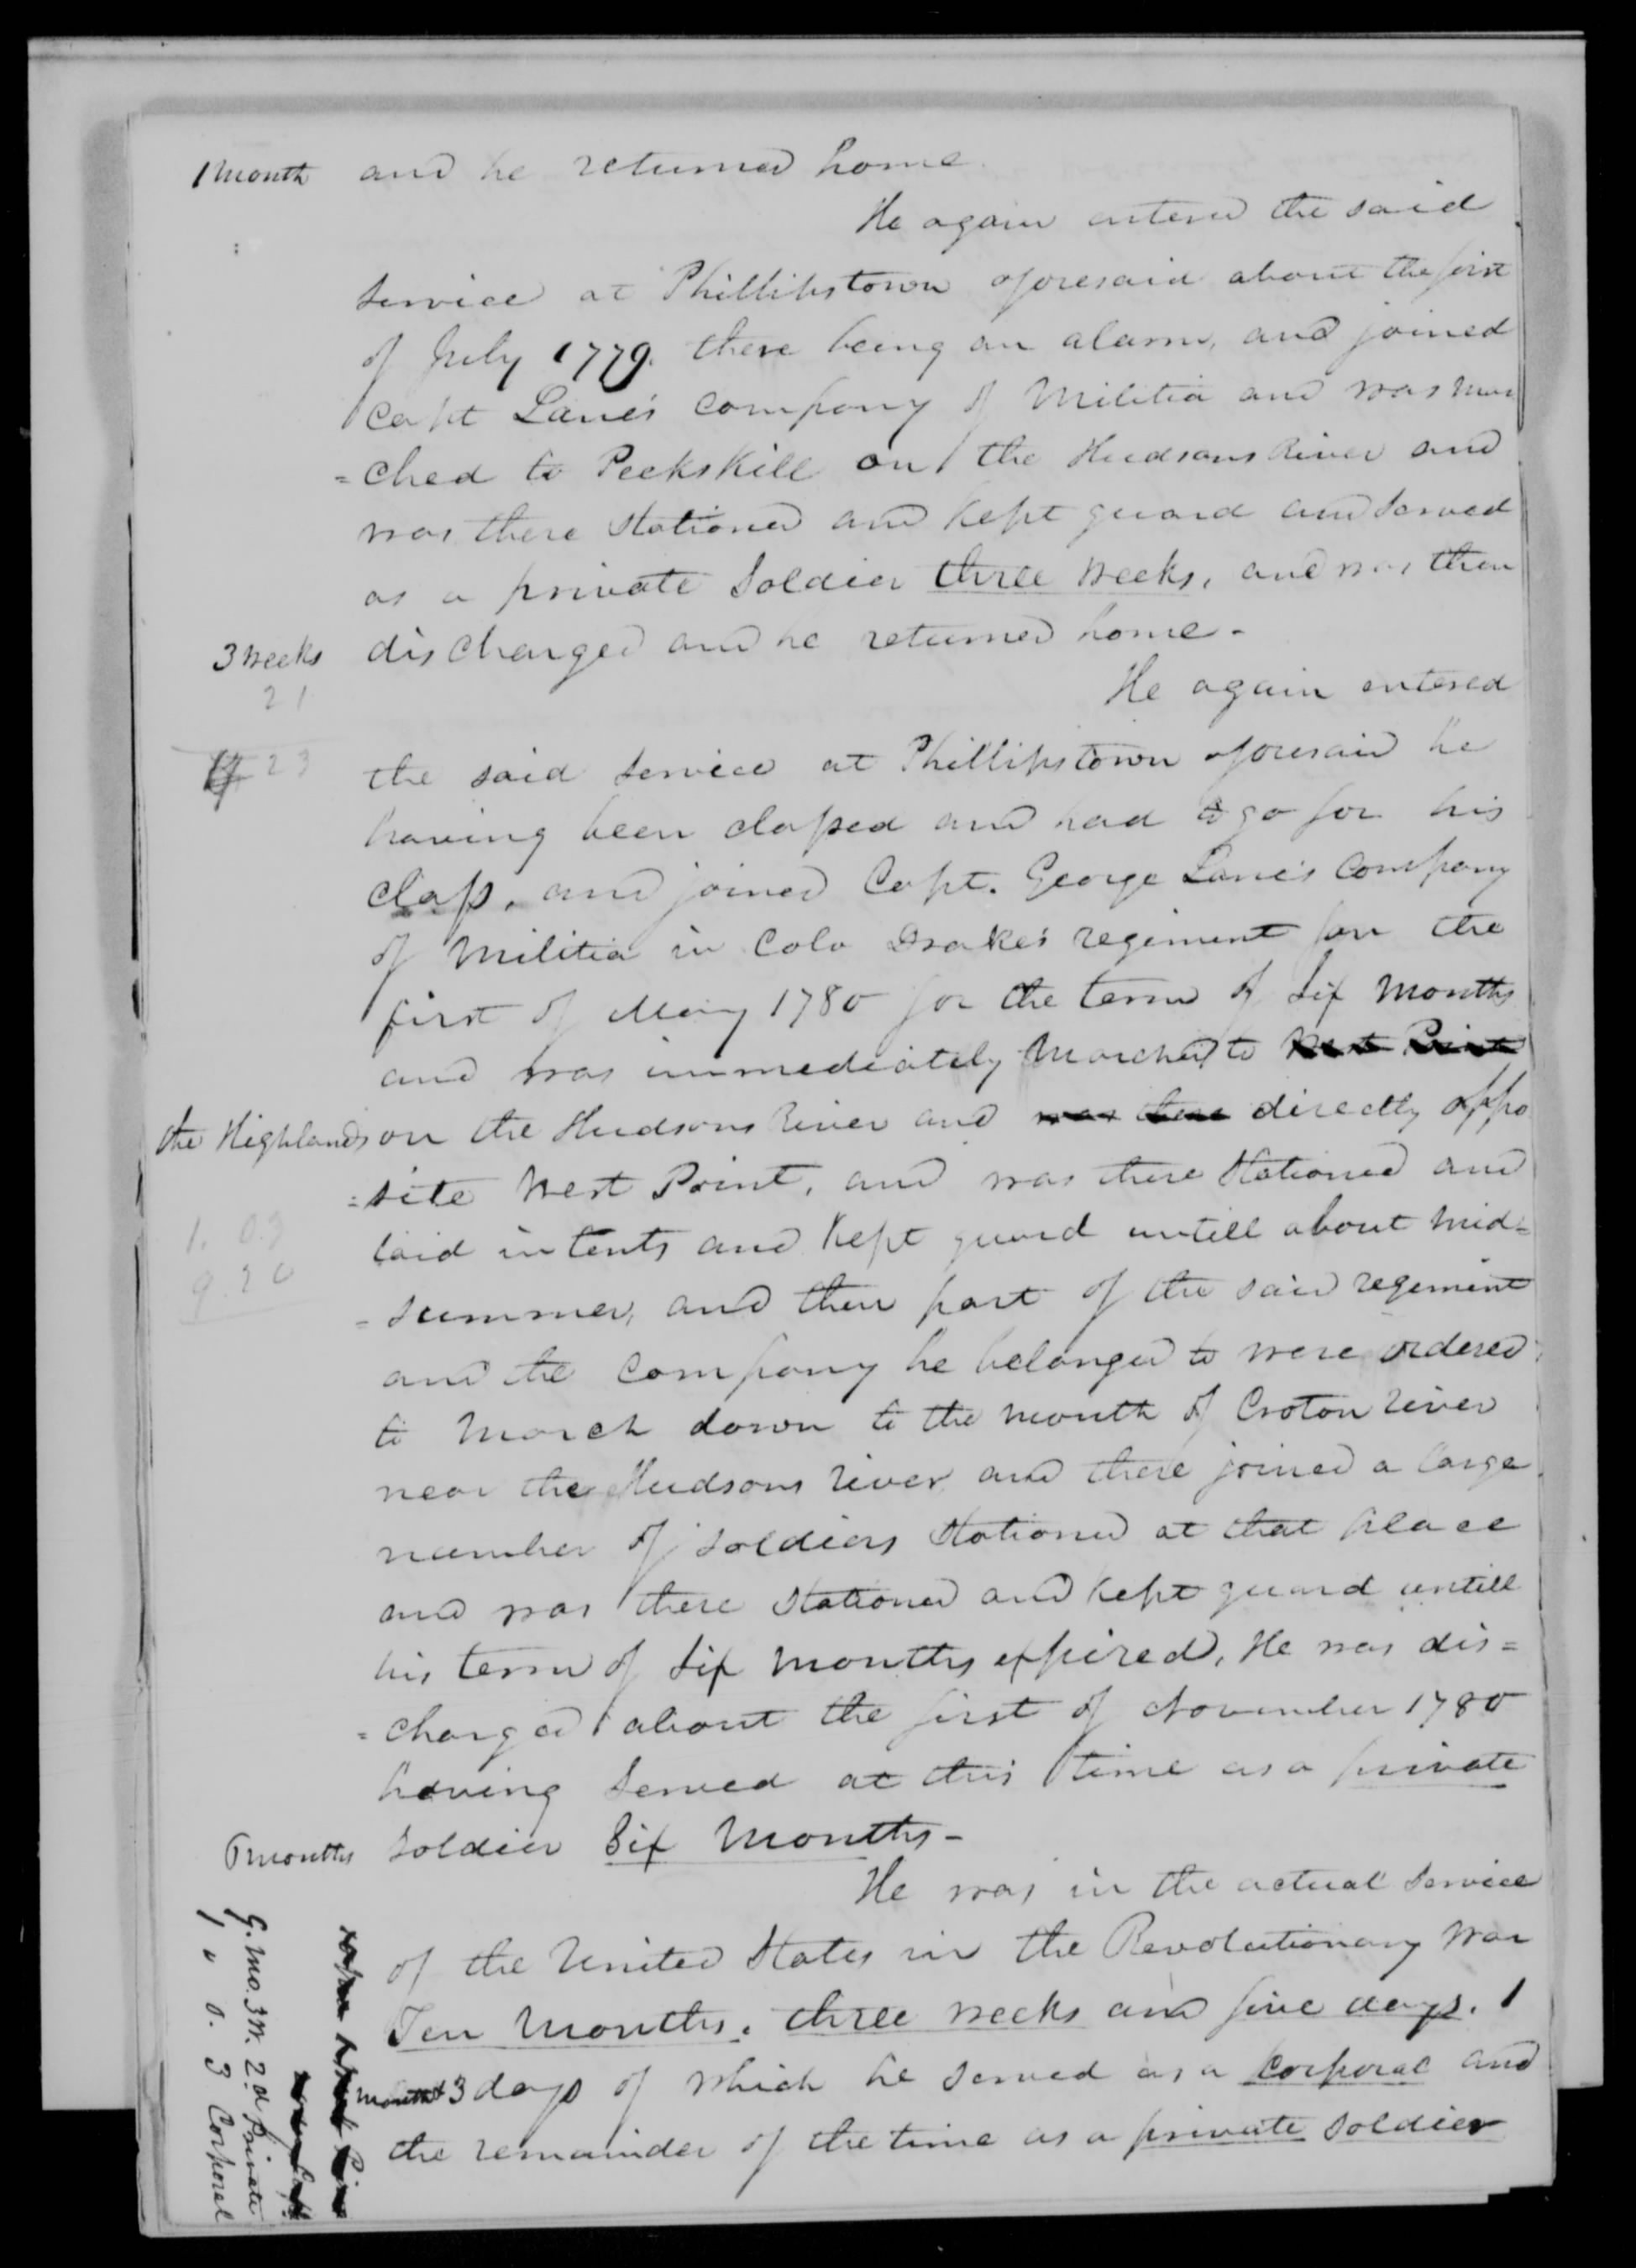 1 month and he returned home.
He again entered the said
service at Phillipstown aforesaid about the first
of July 1779. there being an alarm, and joined
Capt Lane's company of Militia and was mar
=ched to Peekskill on the Hudsons River and
was there stationed and kept guard and served
as a private Soldier three weeks, and was then
3 weeks discharged and he returned home -
21
He again entered
23
the said service at Phillipstown aforesaid he
having been classed and had to go for his
class, and joined Capt. George Lane's Company
of Militia in Colo Drake's regiment for the
first of May 1780 for the term of Six Months
and was immediately Marched to West Point
the Highlands on the Hudsons River and was there directly oppo
=site West Point, and was there Stationed and
laid in tents and kept guard untill about mid=
1. 0.3
9.26
=summer, and then part of the said regement
and the Company he belonged to were ordered
to March down to the mouth of Croton river
near the Hudsons river and there joined a large
number of soldiers Stationed at that place
and was there stationed and kept guard untill
his term of Six months expired, He was dis=
=charged about the first of November 1780
having served at this time as a private
6 months soldier Six Months -
He was in the actual service
of the United States in the Revolutionary War
Ten Months, three weeks and five days. 1
month & 3 days of which he served as a Corporal and
the remainder of the time as a private soldier
9. mo. 3 w. 2.d private
1 " 0. 3 Corporal